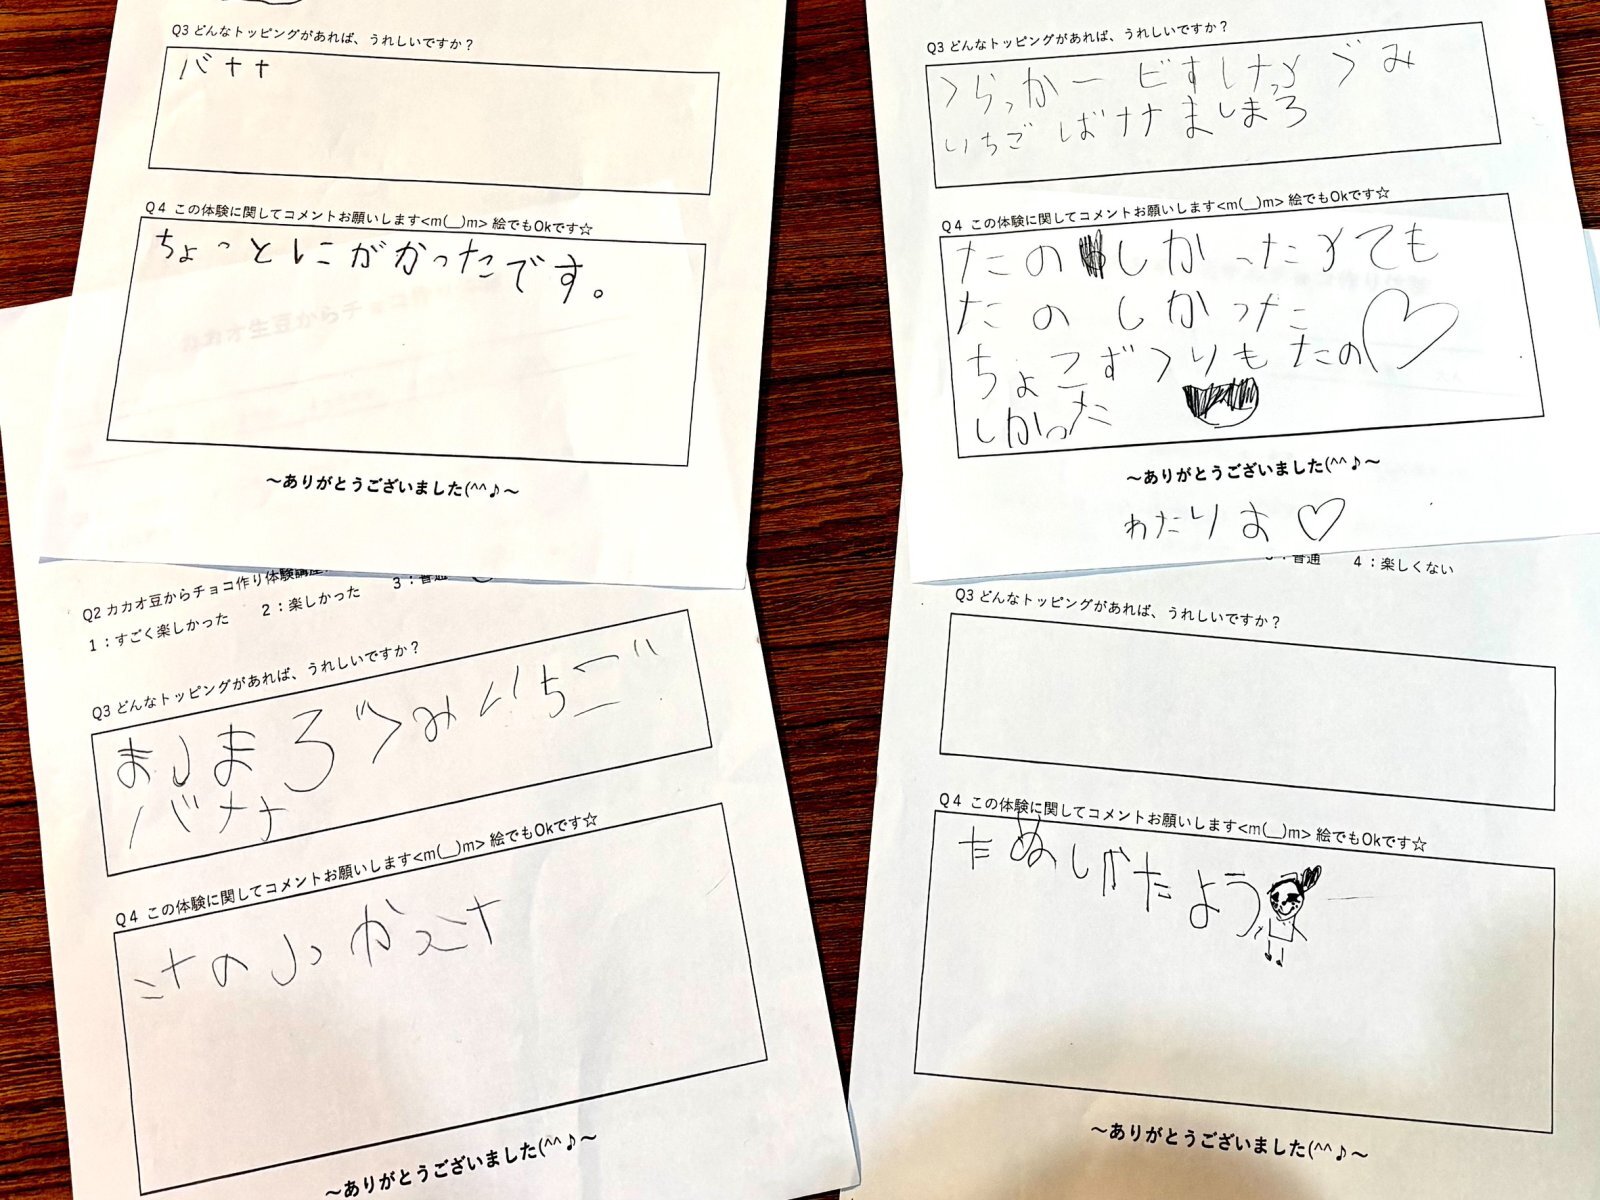 Q3 どんなトッピングがあれば、うれしいですか？
バナナ
Q4 この体験に関してコメントお願いします<m(__)m> 絵でもOkです☆
ちょっとにがかったです。
～ありがとうございました(^^♪～
Q3 どんなトッピングがあれば、うれしいですか？
くらっかー ビすけっと ぐみ
いちご ばナナ ましまろ
Q4 この体験に関してコメントお願いします<m(__)m> 絵でもOkです☆
たのしかったとても
たのしかった
ちょこずくりもたの
しかった
～ありがとうございました(^^♪～
わたりお
Q2 カカオ豆からチョコ作り体験講座
1：すごく楽しかった 2：楽しかった 3：普通
Q3 どんなトッピングがあれば、うれしいですか？
ましまろ ぐみ いちご
バナナ
Q4 この体験に関してコメントお願いします<m(__)m> 絵でもOkです☆
～ありがとうございました(^^♪～
3：普通 4：楽しくない
Q3 どんなトッピングがあれば、うれしいですか？
Q4 この体験に関してコメントお願いします<m(__)m> 絵でもOkです☆
たぬしかたよう
～ありがとうございました(^^♪～